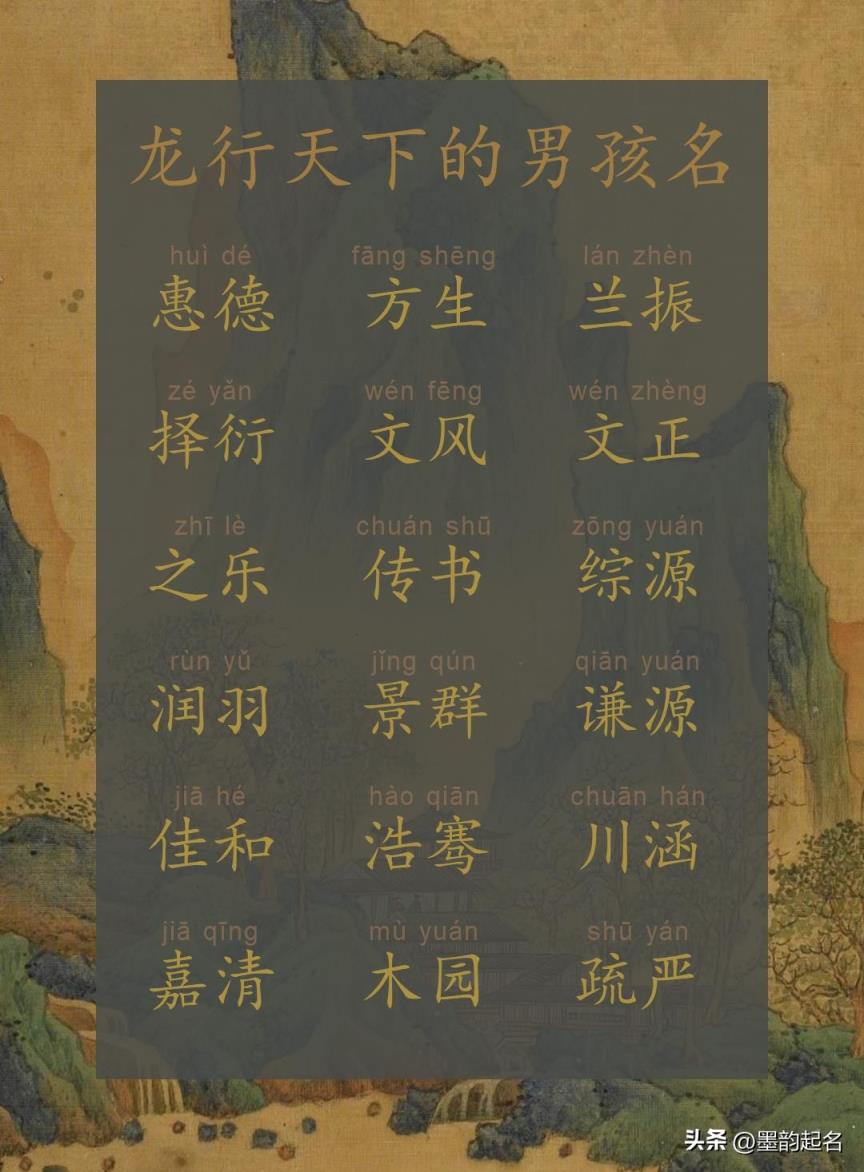 龙行天下的男孩名
huì dé fāng shēng lán zhèn
惠德 方生 兰振
zé yǎn wén fēng wén zhèng
择衍 文风 文正
zhī lè chuán shū zōng yuán
之乐 传书 综源
rùn yǔ jǐng qún qiān yuán
润羽 景群 谦源
jiā hé hào qiān chuān hán
佳和 浩骞 川涵
jiā qīng mù yuán shū yán
嘉清 木园 疏严
头条 @墨韵起名